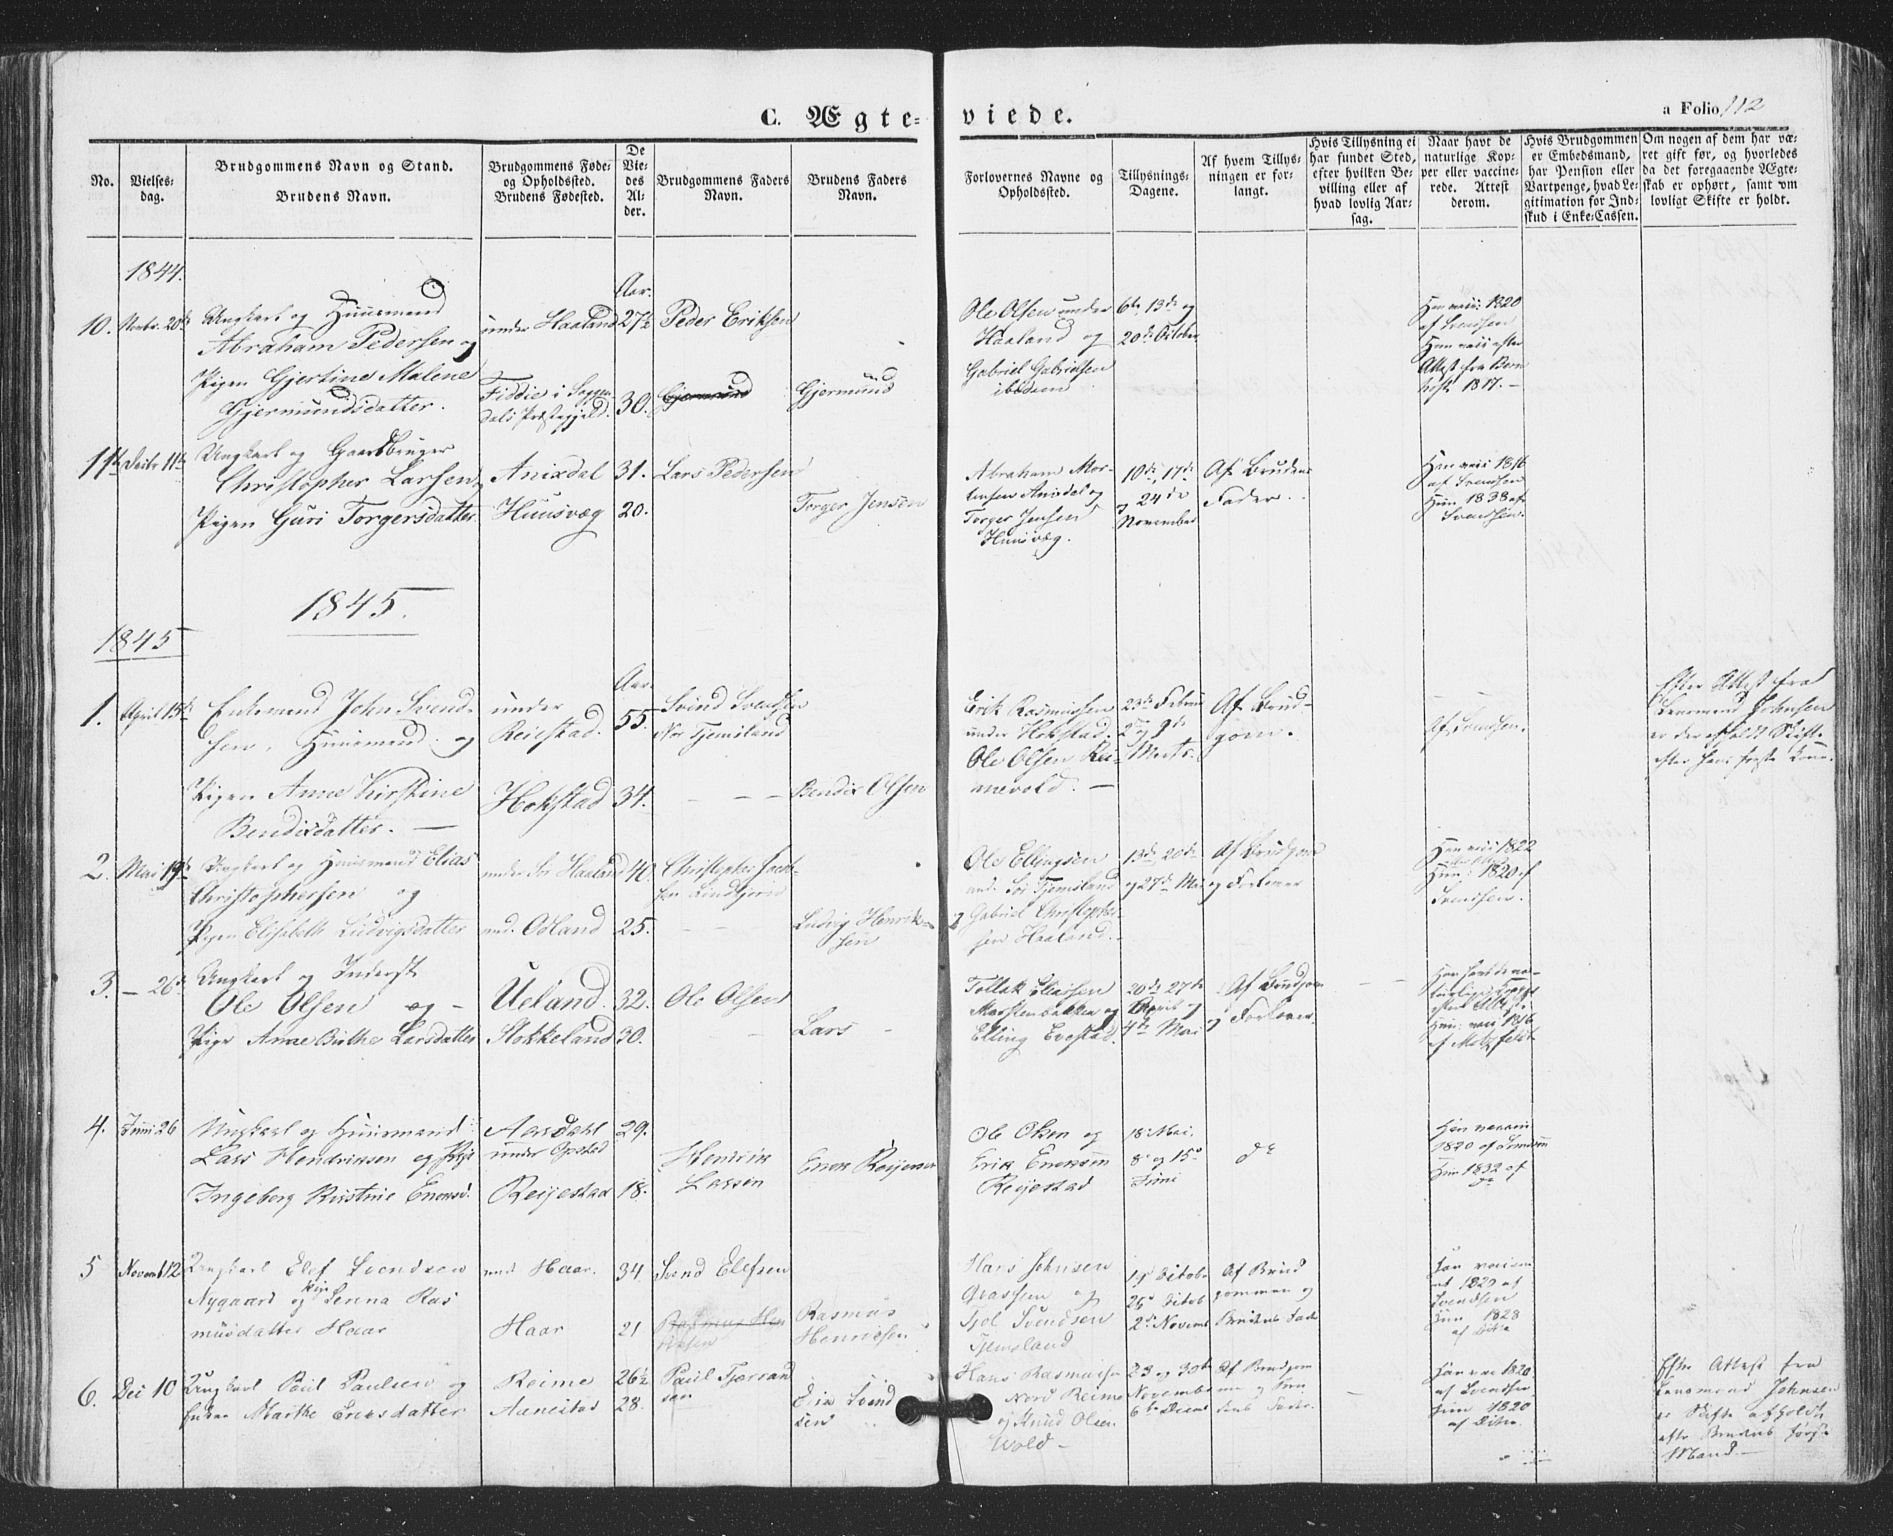 C. Ægte- viede.
a Folio 112
No.
Vielses-
dag.
Brudgommens Navn og Stand.
Brudens Navn.
Brudgommens Føde-
og Opholdssted.
Brudens Fødested.
De
Vie-
des
Al-
der.
Brudgommens Faders
Navn.
Brudens Faders
Navn.
Forlovernes Navne og
Opholdssted.
Tillysnings-
Dagene.
Af hvem Tillys-
ningen er for-
langt.
Hvis Tillysning ei
har fundet Sted,
efter hvilken Be-
villing eller af
hvad lovlig Aar-
sag.
Naar havt de
naturlige Kop-
per eller vaccine-
rede. Attest
derom.
Hvis Brudgommen
er Embedsmand,
har Pension eller
Vartpenge, hvad Le-
gitimation for Ind-
skud i Enke-Cassen.
Om nogen af dem har væ-
ret gift før, og hvorledes
da det foregaaende Ægte-
skab er ophørt, samt om
lovligt Skifte er holdt.
1844.
Aar.
10. Novbr. 20de
Ungkarl og Huusmand
Abraham Pedersen og
Pigen Gjertine Malene
Gjermundsdatter.
under Haaland
Fiddie i Soggen-
dals Præstegjeld.
27½
30.
Peder Eriksen
Gjermund
Gjermund
Ole Olsen under
Haaland og
Gabriel Gabrielsen
ibidem
6te, 13de og
20de October
Han vacc: 1820
af Svendsen
Hun vacc efter
Attest fra
1817. -
11te Decbr 11te
Ungkarl og Gaardbruger
Christopher Larsen og
Pigen Guri Torgersdatter
Anixdal
Huusvæg
31.
20.
Lars Pedersen
Torger Jensen
Abraham Mor-
tensen Anixdal og
Torger Jensen
Huusvæg.
10de, 17de
og 24de
November
Af Brudens
Fader.
Han vacc 1816
af Svendsen
Hun 1838 af
Svendsen.
1845.
1845
Aar.
1. April 15de
Enkemand John Svend-
sen, Huusmand og
Pigen Anne Kirstine
Bendixdatter. -
under
Reiestad.
Hokstad
55.
34.
Svend Svendsen
Nør Tjemsland
Bendix Olsen
Erik Rasmussen
under Hokstad.
Ole Olsen Rei-
mevold. -
23de Februar
2den og 9de
Marts.
Af Brud-
gom.
Af Svendsen.
Efter Attest fra
Lensmand Johnsen
er der afholdt Skifte
efter hans første Kone.
2. Mai 19de
Ungkarl og Huusmand Elias
Christophersen og
Pigen Elisabeth Ludvigsdatter
under Sør Haaland
und. Odland
40.
25.
Christopher
Ludvig Henrik-
sen
Ole Ellingsen
und. Sør Tjemsland
og Gabriel Christopher-
sen Haaland.
13de, 20de
og 27de Mai
Af Brudgom
og Forlover
Han vacc 1822
Hun: 1820 af
Svendsen.
3. - 26de
Ungkarl og Inderst
Ole Olsen og -
Pige Anne Birthe Larsdatter
Ueland.
Stokkeland
32.
30.
Ole Olsen
Lars -
Tollak Eliassen
Marstenbakken og
Elling Evestad.
20de 27de
April og
4de Mai
Af Brudgom
og Forlover.
Han havt de na-
turlige Kopper
efter Attest.
Hun: vacc 1816
af
4. Juni 26
Ungkarl og Huusmand
Lars Hendriksen og Pige
Ingeborg Kristine Enensd.
Aarsdahl
under Opstad
Reijestad
29.
18.
Henrik
Larsen
Enen
Ole Olsen og
Erik Enensen
Reijestad
18 Mai,
8 og 15de
Juni
do
Han vaccin
1820 af Svendsen
Hun 1832 af
do
5 Novemb 12
Ungkarl Elef Svendsen
Nygaard og Pige Serina Ras
musdatter Haar
und Haar.
Haar
34
21
Svend Elefsen
Rasmus Hen
riksen
Rasmus
Henriksen
Hans Johnsen
Grassen og
Tjel Svendsen
Tjemsland
19de Octobr
26de Octob
2de Novemb
Af Brud
gommen og
Brudens Fader
Han vaccin
ert 1820 af
Svendsen
Hun 1828
af Ditto
6. Dec 10
Ungkarl Poul Paulsen og
Enken Marthe Eriksdatter
Reime
Aanestad
26½
28.
Paul
sen
Erik Svend
sen
Hans Rasmusen
Nord Reime
og Knud Olsen
Wold -
23 og 30te
November
6te Decem
Af Brudgom
men og Bru
dens Fader.
Han vac 1820
af Svendsen
Hun 1820
af Ditto.
Efter Attest fra
Lensmand Johnsen
er Skifte afholdt
efter Brudens første
Mand -